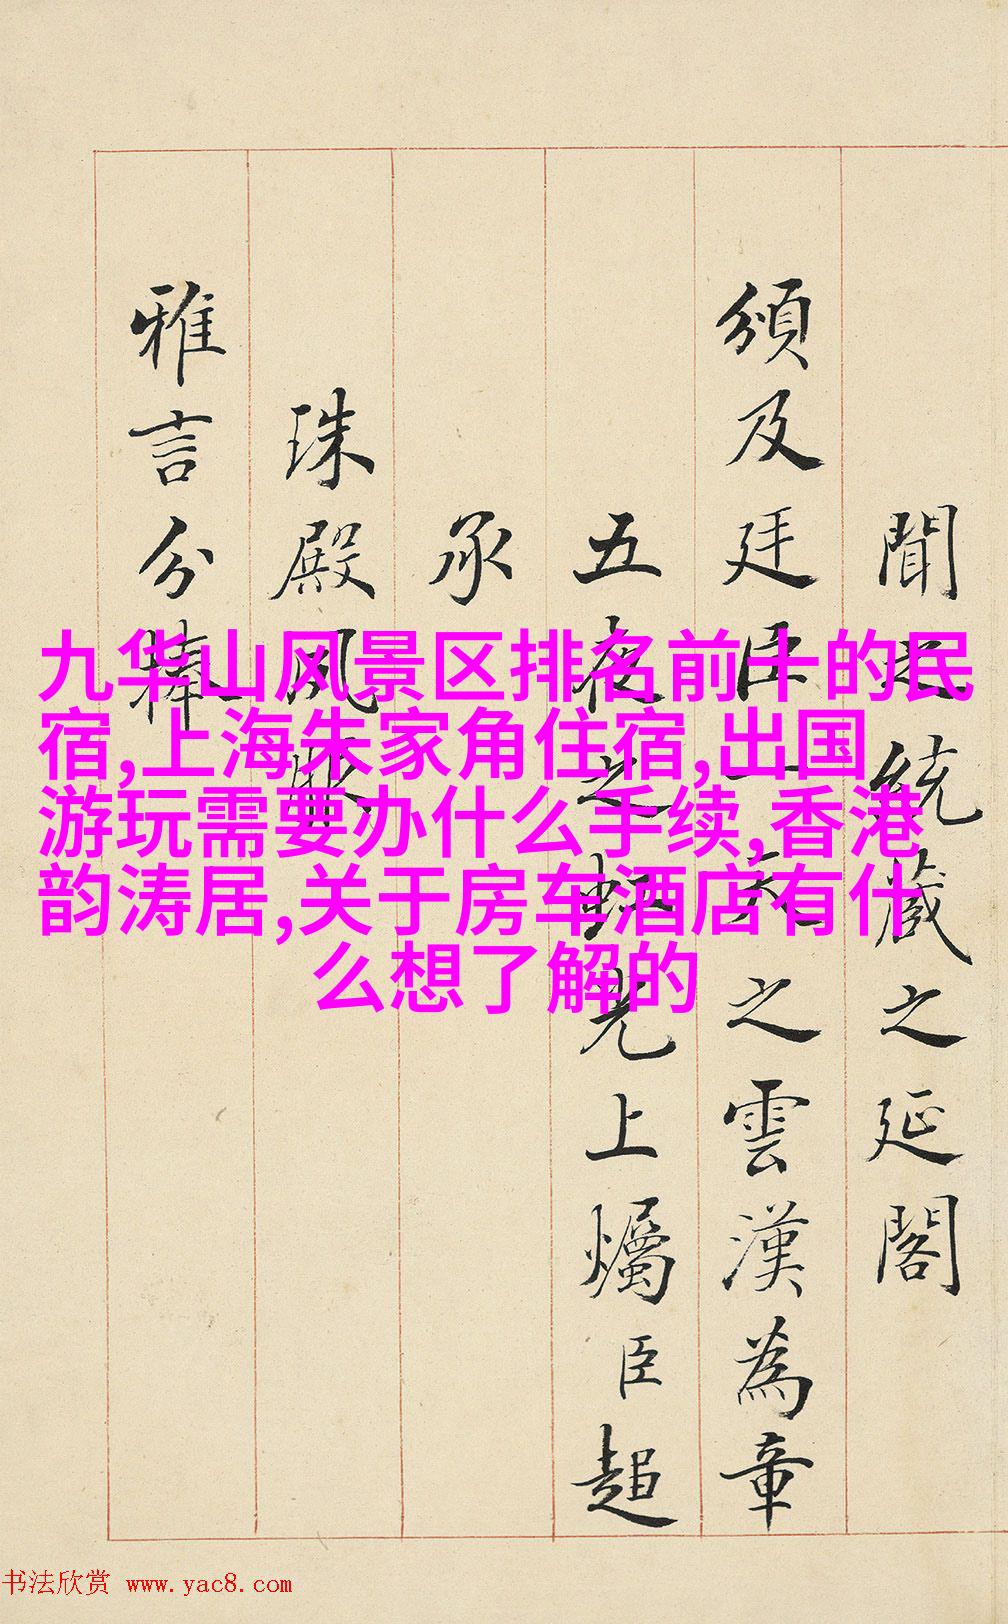 聞之統藏之延閣
頒及廷臣一天之雲漢為章
五夜之虹光上燭臣超
承
珠殿風
雅言分捧
九华山风景区排名前十的民
宿,上海朱家角住宿,出国
游玩需要办什么手续,香港
韵涛居,关于房车酒店有什
么想了解的
书法欣赏 www.yac8.com